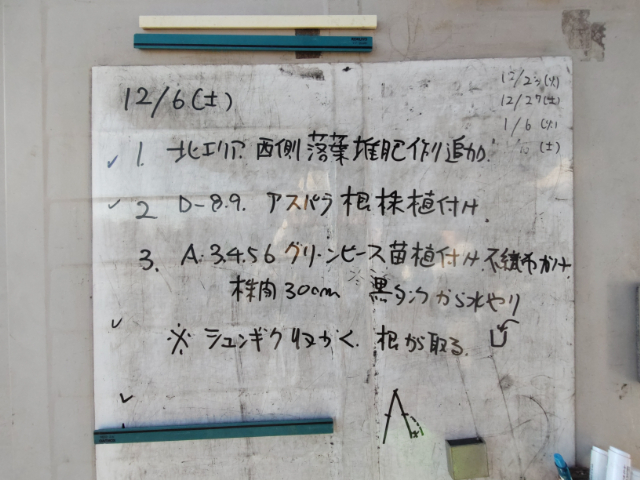 12/6(土)
12/23(火)
12/27(土)
1/6(火)
(土)
1. 北エリア. 西側 落葉堆肥作り追加.
2 D-8.9. アスパラ 根株植付け.
3. A.3.4.5.6 グリーンピース苗植付け.不織布かけ.
株間30cm 黒タンクから水やり
※ シュンギク収かく. 根から取る.